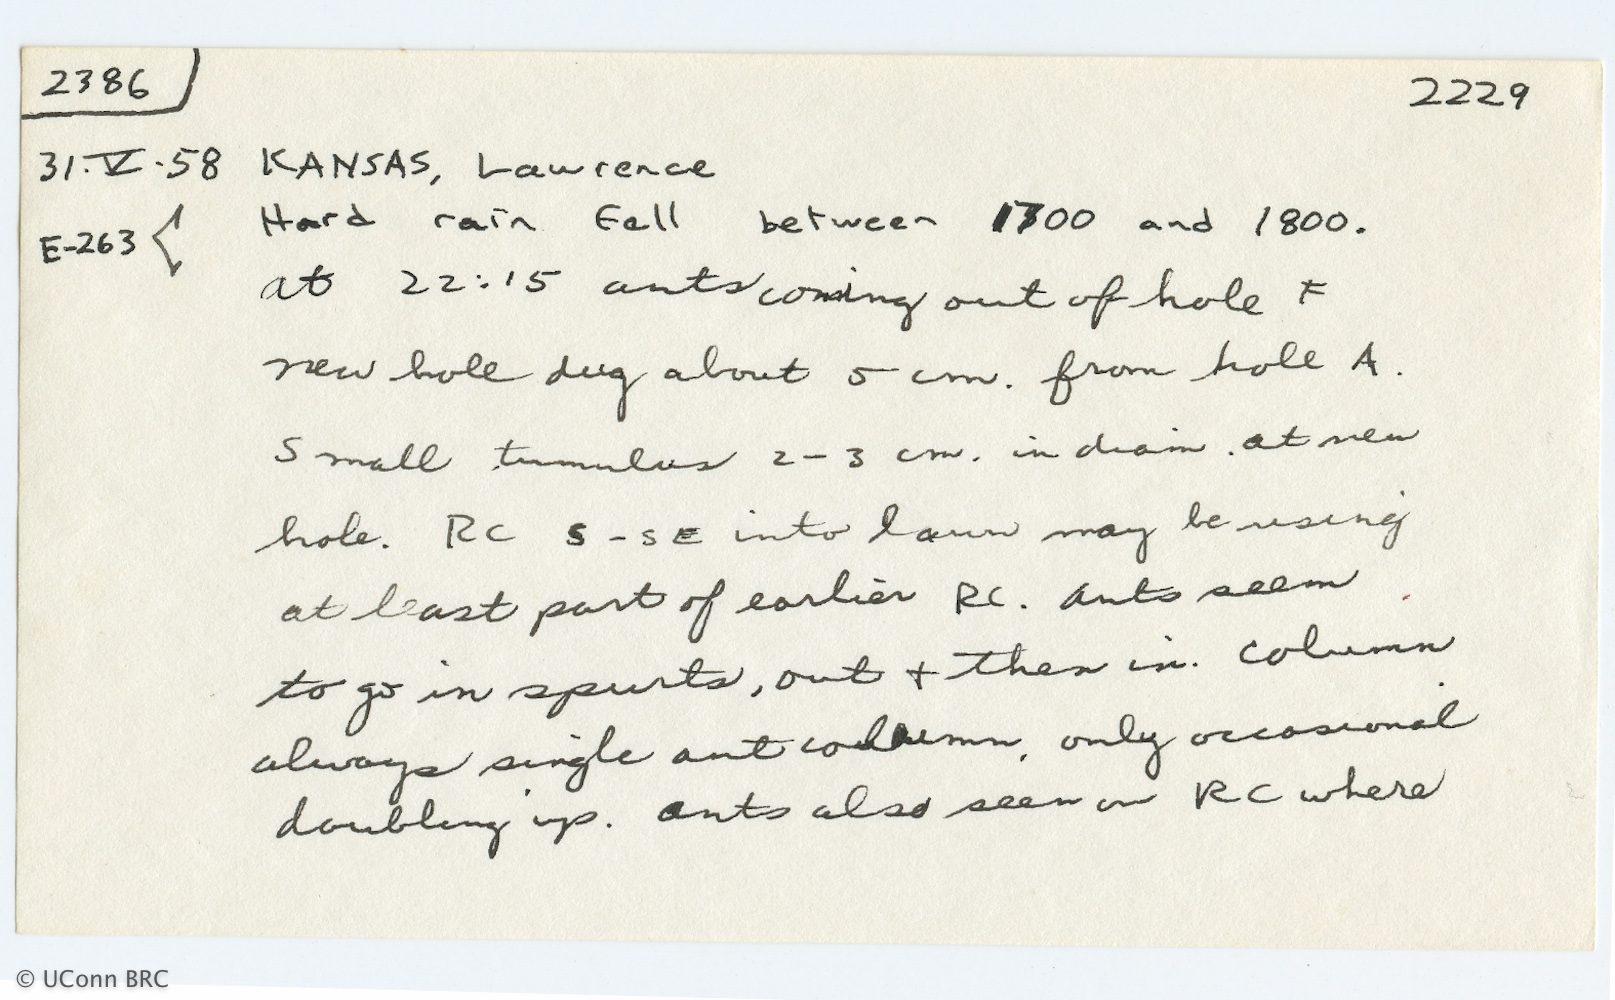 2386
2229
31.V.58 KANSAS, Lawrence
E-263
Hard rain fell between 1700 and 1800.
at 22:15 ants coming out of hole F
new hole dug about 5 cm. from hole A.
Small tumulus 2-3 cm. in diam. at new
hole. RC S-SE into lawn may be using
at least part of earlier RC. Ants seem
to go in spurts, out + then in. Column
always single ant column, only occasional
doubling up. Ants also seen on RC where
© UConn BRC